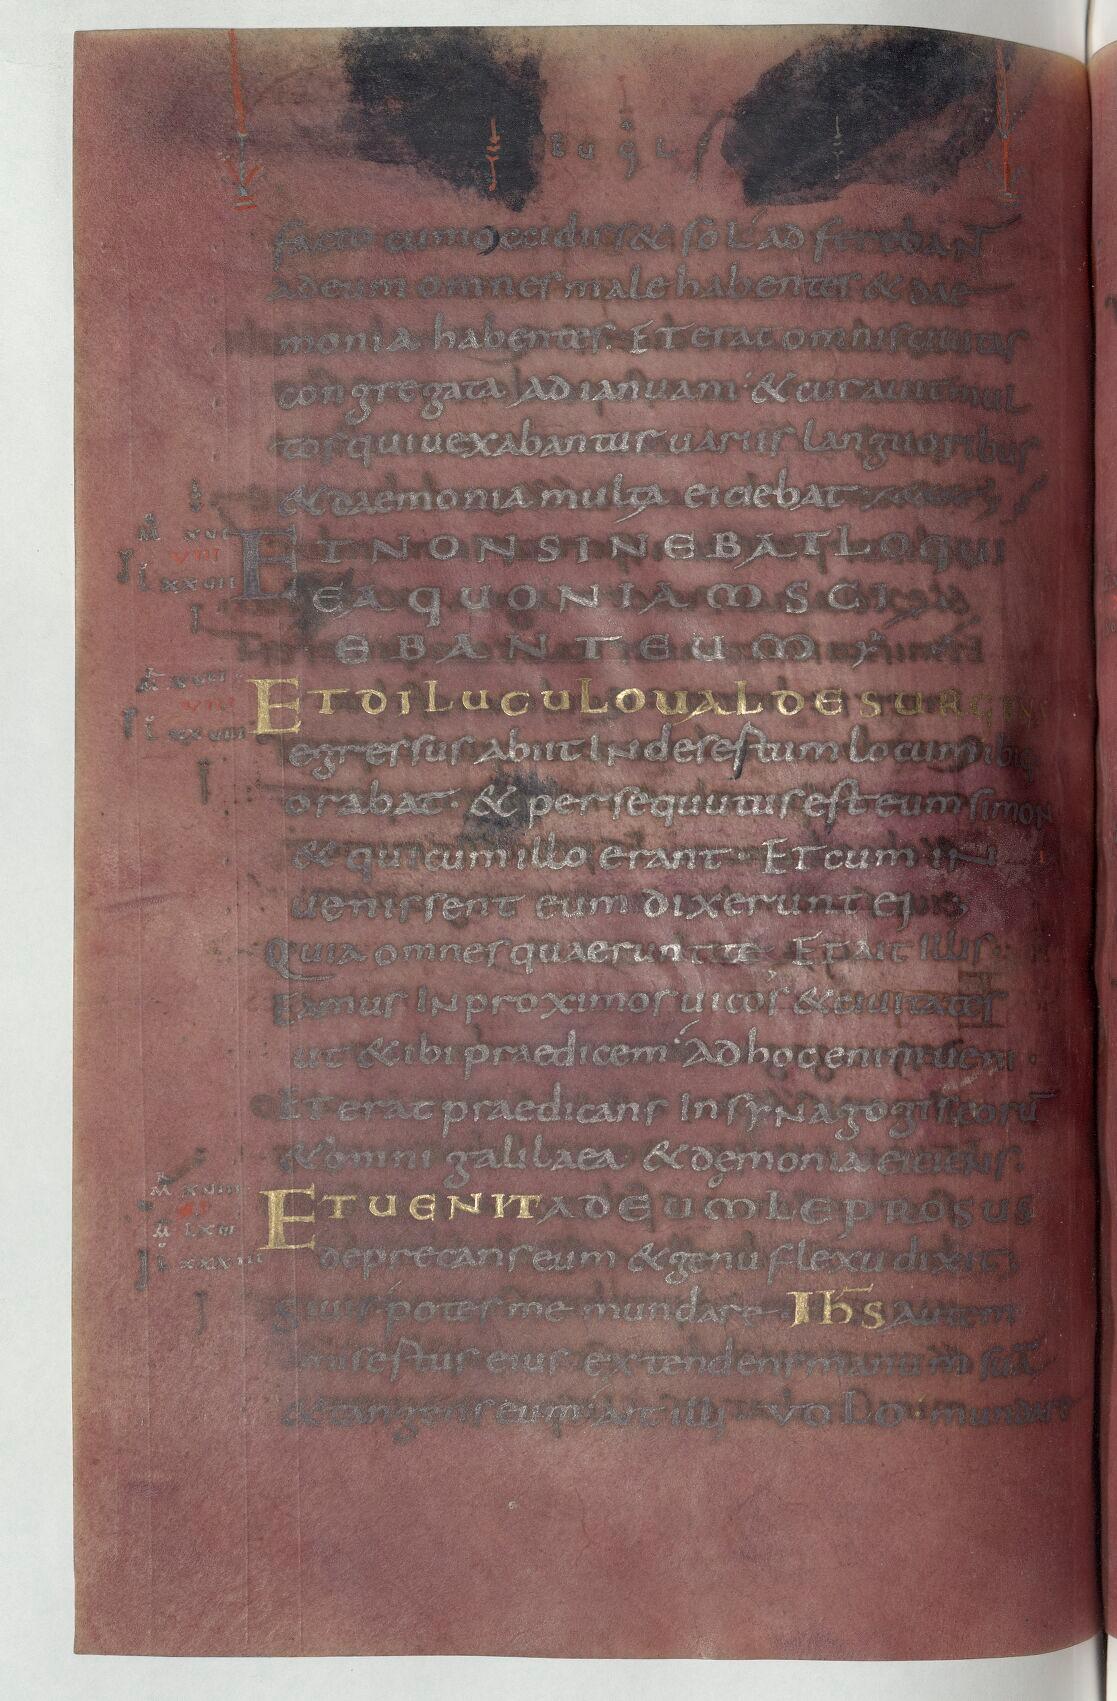 EUGLS
facto cum occidiss& sol adferebaN
adeum omnes male habentes & dae
monia habentes. ET erat omnis ciuitas
congregata ad ianuam. & curauit mul
tos qui uexabantur uariis languoribus
& daemonia multa eiciebat
ET NON SINEBAT LOQUI
EA QUONIAM SCI
EBANT EUM
M XVII
VIII
L XXVIII
ET DILUCULO UALDE SURGENS
egressus abiit IN desertum locum ibiq
orabat. & persequutus est eum simon
& qui cum illo erant. ET cum IN
uenissent eum dixerunt ei
Quia omnes quaerunt te ET ait illis
Eamus IN proximos uicos & ciuitates
ut & ibi praedicem. Ad hoc enim ueni.
ET erat praedicans IN syNagogis eorū
& omni galilaea & dęmonia eiciens.
M XVIII
ET UENIT AD EUM LEPROSUS
deprecans eum & genu flexu dixit
Si uis potes me mundare. Ihs autem
misertus eius extendens manum suā
& tangens eum ait illi. Volo mundare